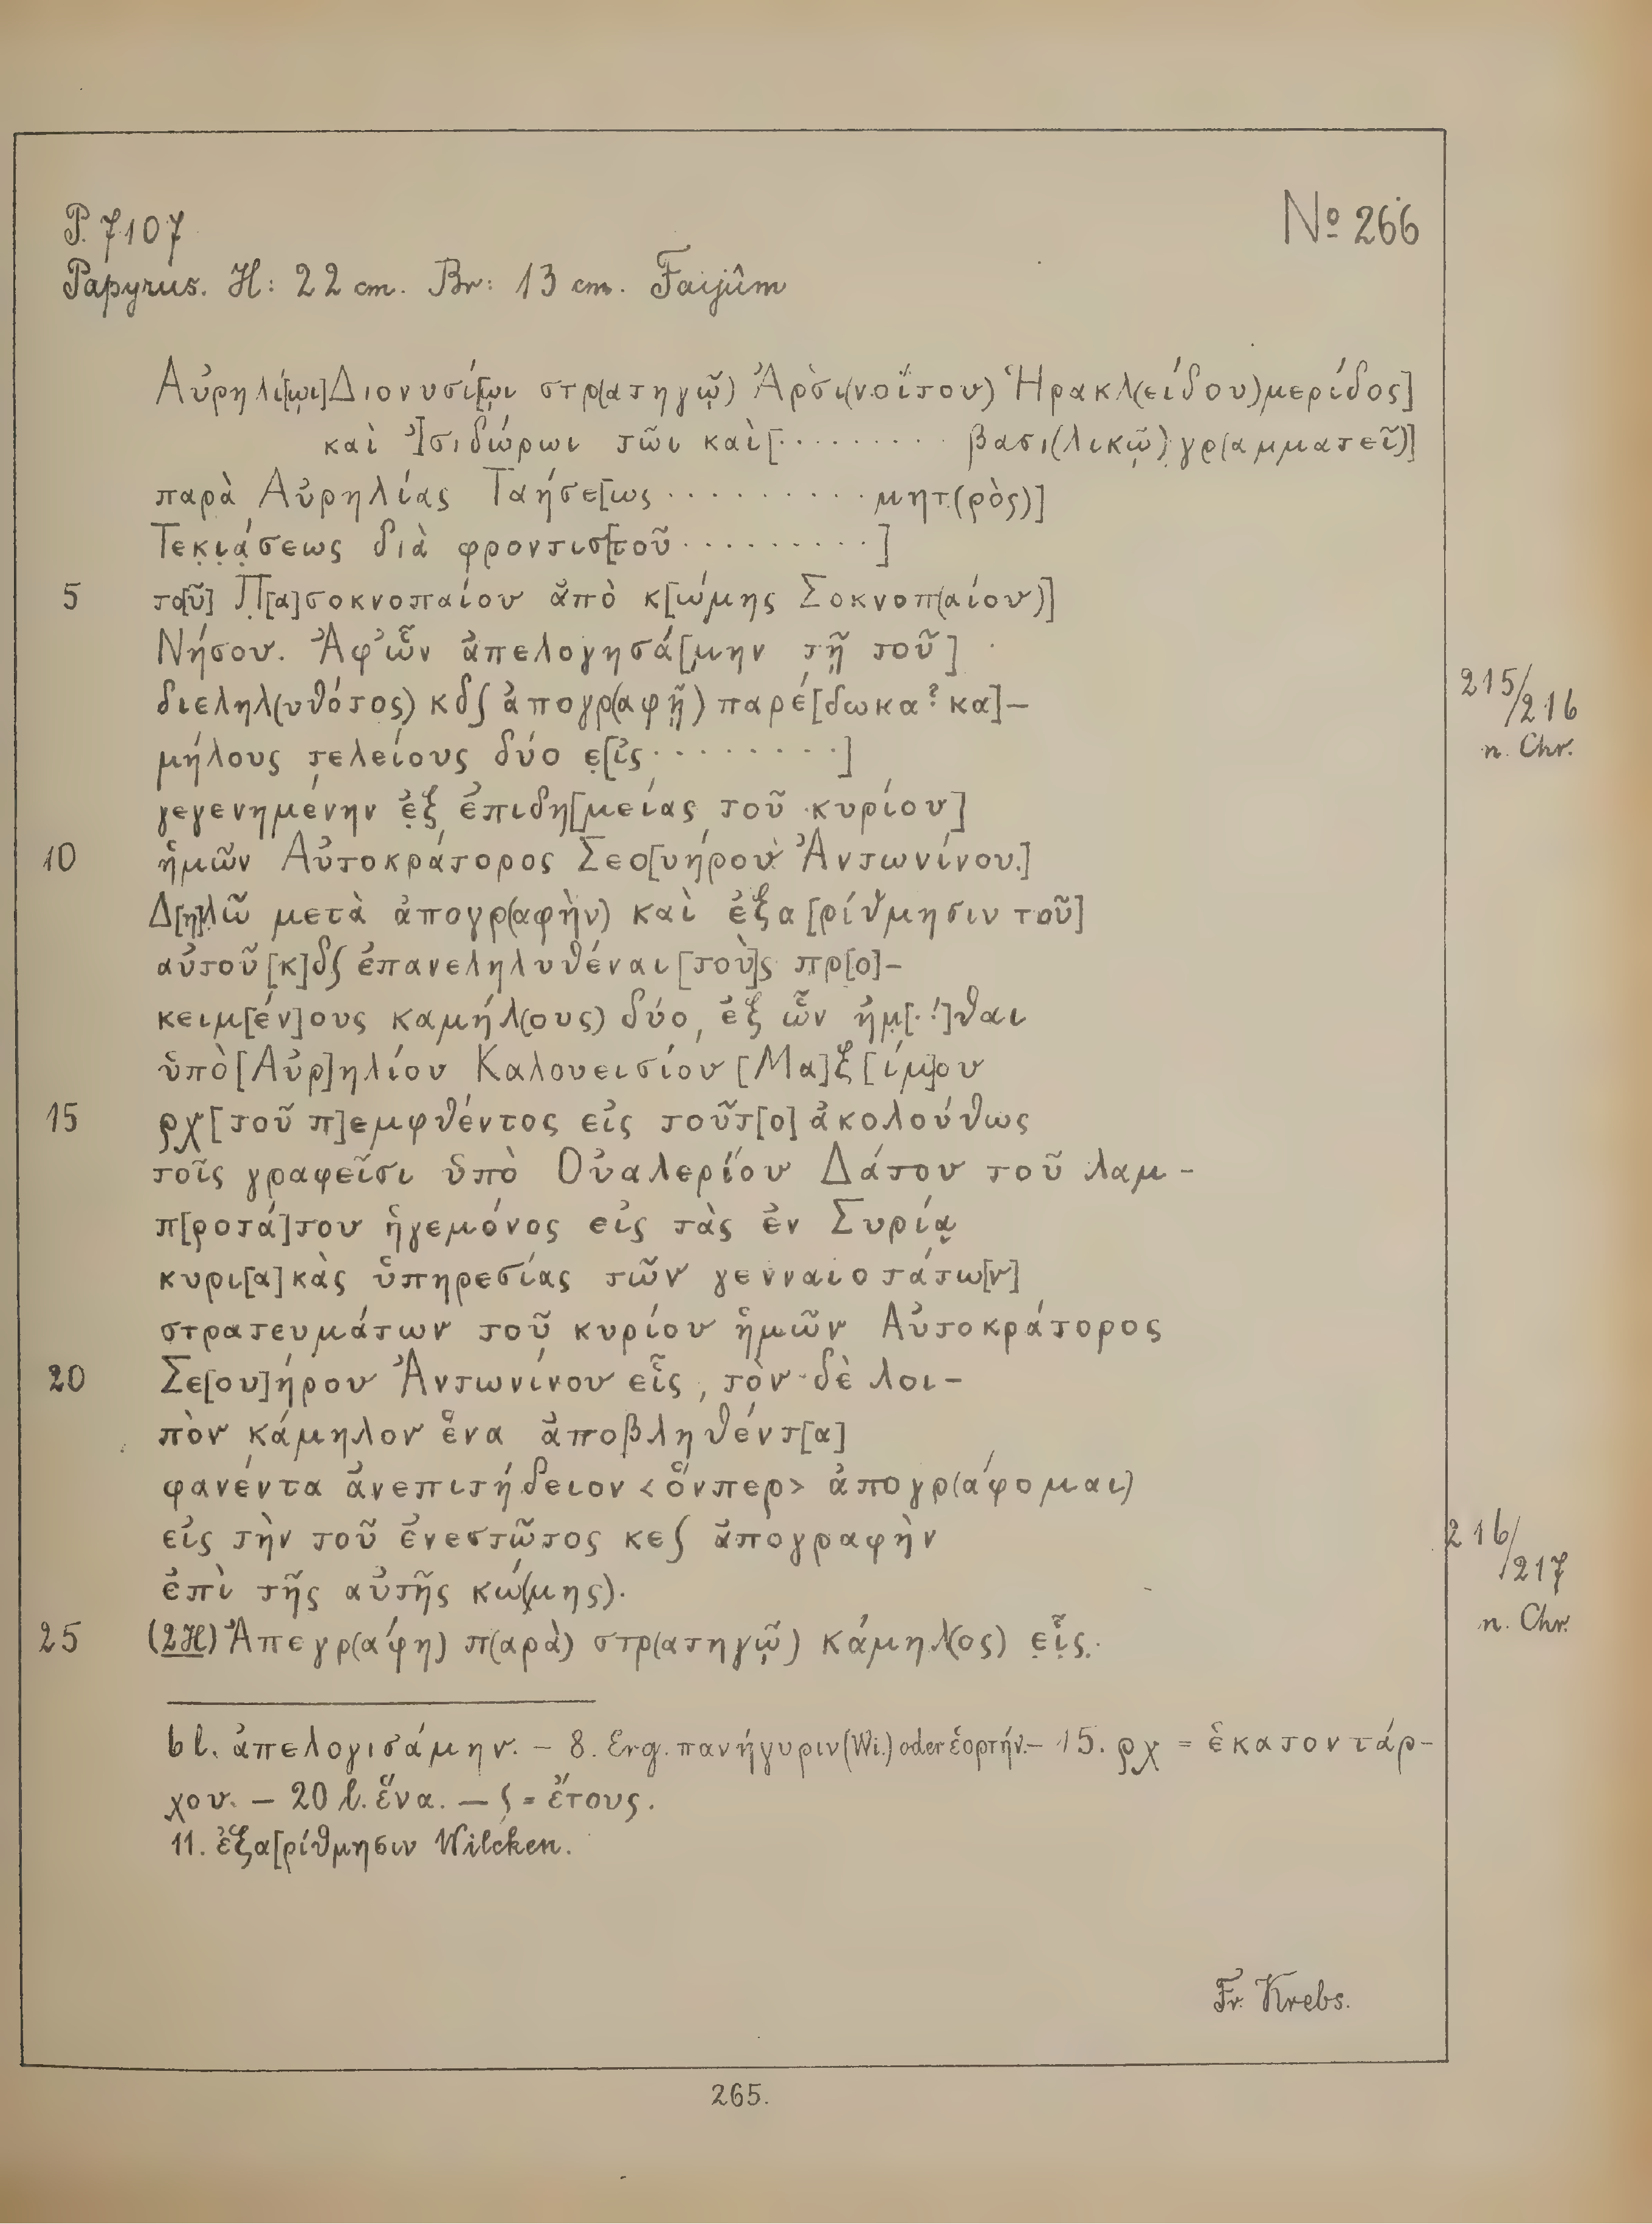 P. 7107
№ 266
Papyrus. H: 22 cm. Br: 13 cm. Faijûm
Αὐρηλί[ωι] Διονυσί[ωι στρ(ατηγῷ) Ἀρσι(νοΐτου) Ἡρακλ(είδου) μερίδος]
καὶ Ἰσιδώρωι τῶι καὶ [· · · · · · · · · βασι(λικῷ) γρ(αμματεῖ)]
παρὰ Αὐρηλίας Ταήσε[ως · · · · · · · · · · μητ(ρὸς)]
Τεκ̣ι̣ά̣σεως διὰ φροντισ[τοῦ · · · · · · · · · ]
5 το[ῦ] Π̣[α]σοκνοπαίου ἀπὸ κ[ώμης Σοκνοπ(αίου)]
Νήσου. Ἀφ' ὧν ἀπελογησά[μην τῇ τοῦ]
διεληλ(υθότος) κδ∫ ἀπογρ(αφῇ) παρέ[δωκα? κα]-
215/216 n. Chr.
μήλους τελείους δύο ε̣[ἰς · · · · · · · · ·]
γεγενημένην ἐ̣ξ ἐπιδη[μείας τοῦ κυρίου]
10 ἡμῶν Αὐτοκράτορος Σεο[υήρου Ἀντωνίνου.]
Δ[η]λ̣ῶ μετὰ ἀπογρ(αφὴν) καὶ ἐξα[ρίθμησιν τοῦ]
αὐτοῦ [κ]δ∫ ἐπανεληλυθέναι [τοὺ]ς πρ[ο]-
κειμ[έν]ους καμήλ(ους) δύο, ἐξ ὧν ἡμ̣[··]θαι
ὑπὸ [Αὐρ]ηλίου Καλουεισίου [Μα]ξ[ίμ]ου
15 ρχ [τοῦ π]εμφθέντος εἰς τοῦτ[ο] ἀκολούθως
τοῖς γραφεῖσι ὑπὸ Οὐαλερίου Δάτου τοῦ λαμ-
π[ροτά]του ἡγεμόνος εἰς τὰς ἐν Συρίᾳ
κυρι[α]κὰς ὑπηρεσίας τῶν γενναιοτάτω[ν]
στρατευμάτων τοῦ κυρίου ἡμῶν Αὐτοκράτορος
20 Σε[ου]ήρου Ἀντωνίνου εἷς, τὸν δὲ λοι-
πὸν κάμηλον ἕνα ἀποβληθέντ[α]
φανέντα ἀνεπιτήδειον <ὅνπερ> ἀπογρ(άφομαι)
εἰς τὴν τοῦ ἐνεστῶτος κε∫ ἀπογραφὴν
216/217 n. Chr.
ἐπὶ τῆς αὐτῆς κώ(μης).
25 (2H) Ἀπεγρ(άφη) π(αρὰ) στρ(ατηγῷ) κάμηλ(ος) ε̣ἷ̣ς̣.
6 l. ἀπελογισάμην. – 8. Erg. πανήγυριν (Wi.) oder ἑορτήν. – 15. ρχ = ἑκατοντάρ-
χου. – 20 l. ἕνα. – ∫ = ἔτους.
11. ἐξα[ρίθμησιν Wilcken.
Fr. Krebs.
265.